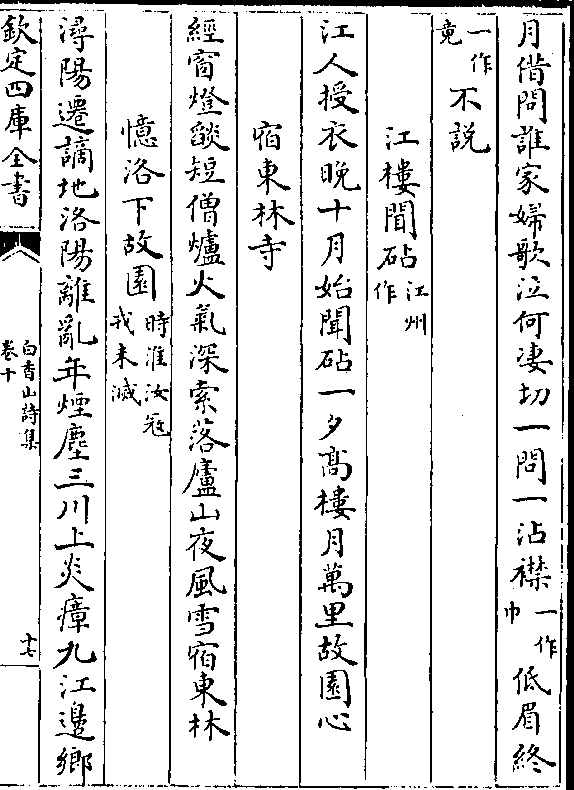 月借問誰家婦歌泣何凄切一問一沾襟一作巾低眉終
一作竟不説
江樓聞砧江州作
江人授衣晚十月始聞砧一夕髙樓月萬里故園心
宿東林寺
經窗燈燄短僧爐火氣深索落廬山夜風雪宿東林
憶洛下故園時淮汝冦戎未滅
潯陽遷謫地洛陽離亂年煙塵三川上炎瘴九江邊鄉
欽定四庫全書
白香山詩集
卷十
十七